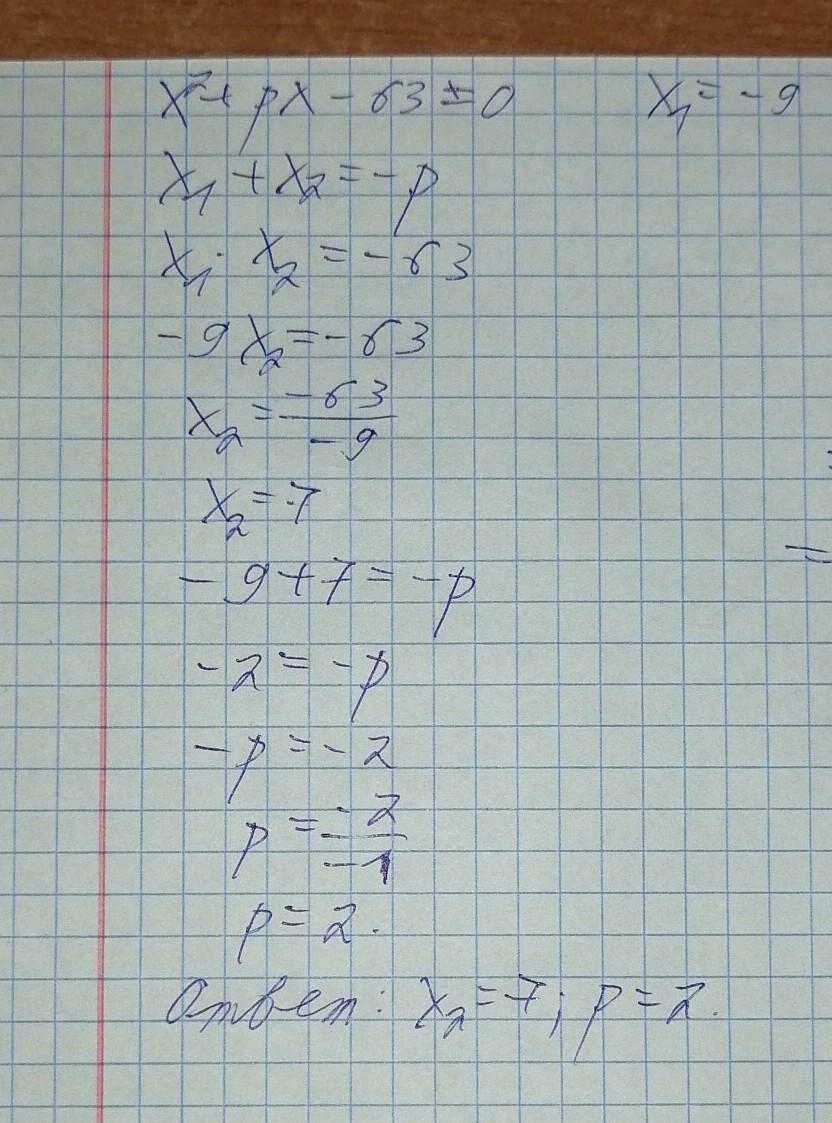 x² + px - 63 = 0    x₁ = -9
x₁ + x₂ = -p
x₁ · x₂ = -63
-9x₂ = -63
x₂ = -63/-9
x₂ = 7
-9 + 7 = -p
=
-2 = -p
-p = -2
p = -2/-1
p = 2.
Ответ: x₂ = 7; p = 2.